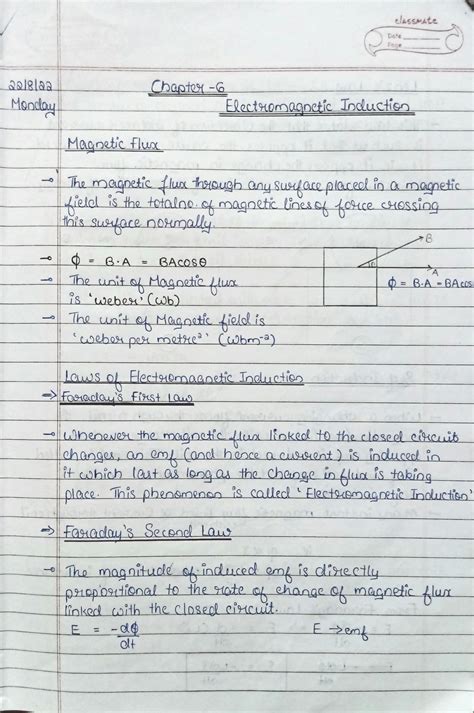 classmate
Date
Page
22/8/22
Monday
Chapter-6
Electromagnetic Induction
Magnetic Flux
→ The magnetic flux through any surface placed in a magnetic
field is the total no. of magnetic lines of force crossing
this surface normally.
→ ϕ = B·A = BAcosθ
→ The unit of Magnetic flux
is 'weber' (Wb)
B
θ
A
ϕ = B·A = BAcos
→ The unit of Magnetic field is
'weber per metre²' (Wbm⁻²)
Laws of Electromagnetic Induction
⇒ Faraday's First Law
→ Whenever the magnetic flux linked to the closed circuit
changes, an emf (and hence a current) is induced in
it which last as long as the change in flux is taking
place. This phenomenon is called 'Electromagnetic Induction'
⇒ Faraday's Second Law
→ The magnitude of induced emf is directly
proportional to the rate of change of magnetic flux
linked with the closed circuit.
E = -dϕ/dt E → emf